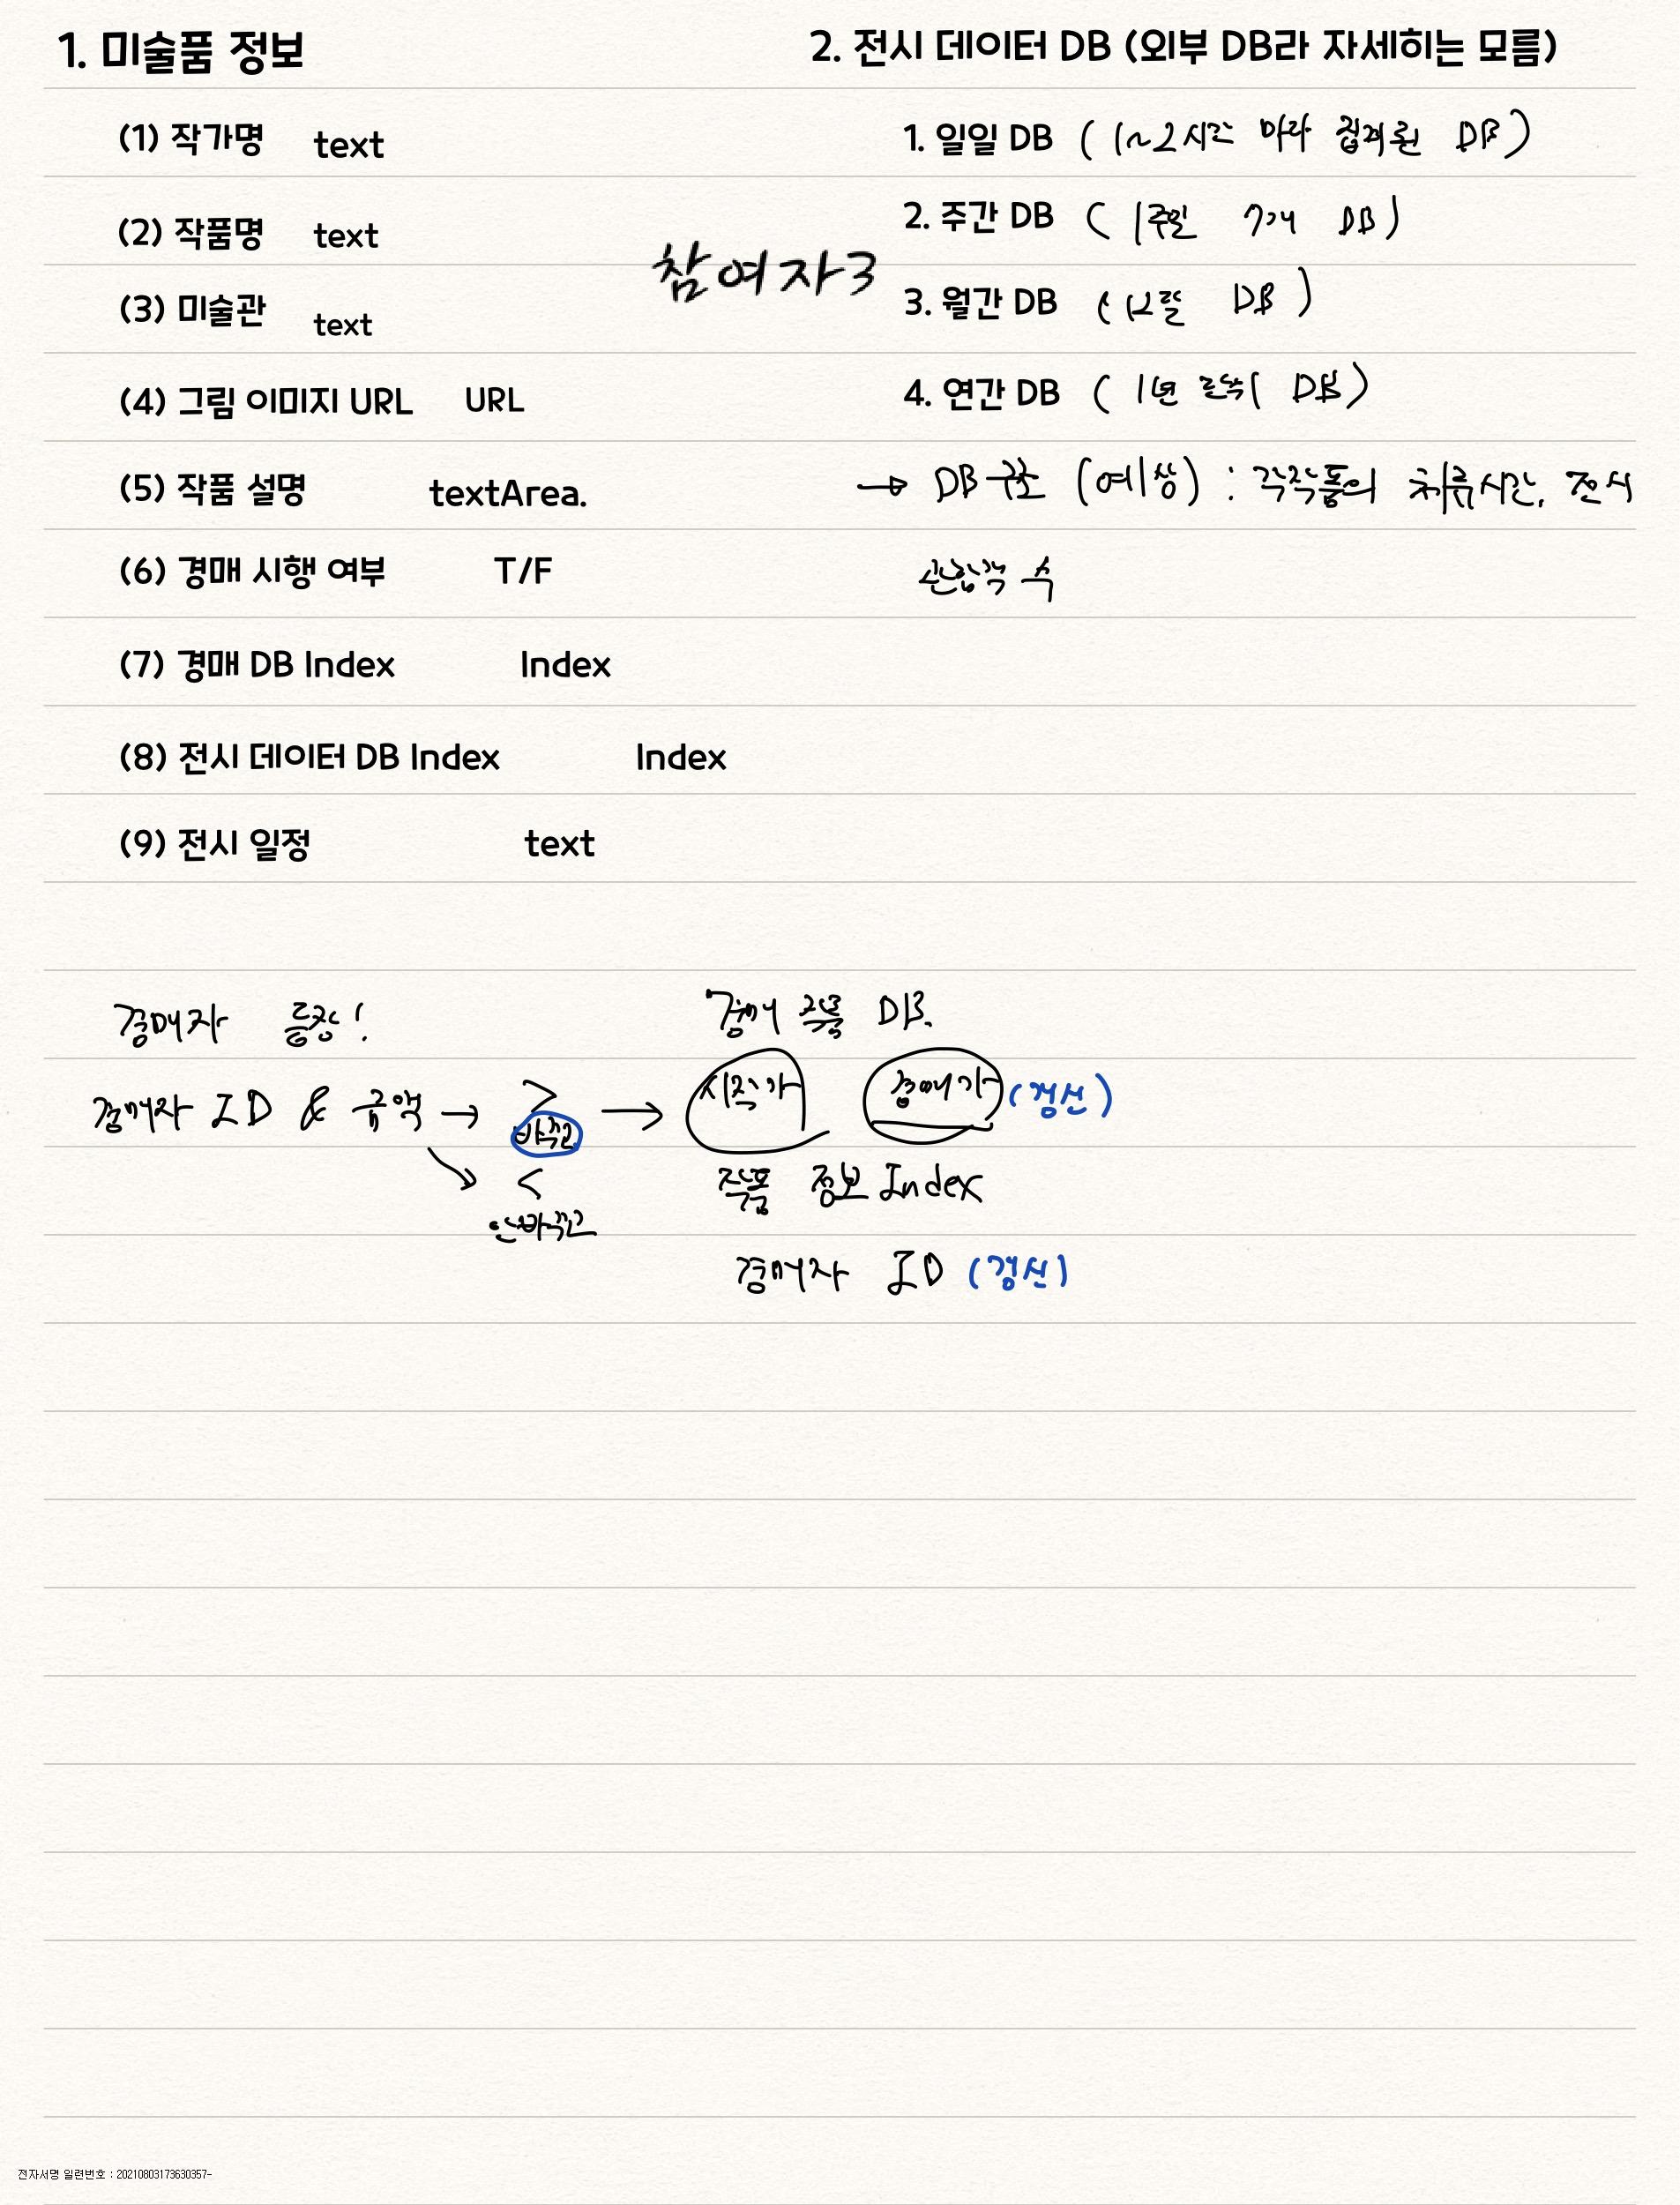 1. 미술품 정보
(1) 작가명 text
(2) 작품명 text
(3) 미술관 text
(4) 그림 이미지 URL URL
(5) 작품 설명 textArea.
(6) 경매 시행 여부 T/F
(7) 경매 DB Index Index
(8) 전시 데이터 DB Index Index
(9) 전시 일정 text
참여자3
2. 전시 데이터 DB (외부 DB라 자세히는 모름)
1. 일일 DB (1~2시간 마다 집계된 DB)
2. 주간 DB (1주일 7개 DB)
3. 월간 DB (DB)
4. 연간 DB (1년 DB)
→ DB구조 (예상) : 각 작품의 체류시간, 전시
관람객 수
경매자 등장!
경매자 ID & 금액 → >
바뀐
<
안바뀐
경매 작품 DB.
시작가 경매가 (갱신)
작품 정보 Index
경매자 ID (갱신)
전자서명 일련번호 : 20210803173630357-